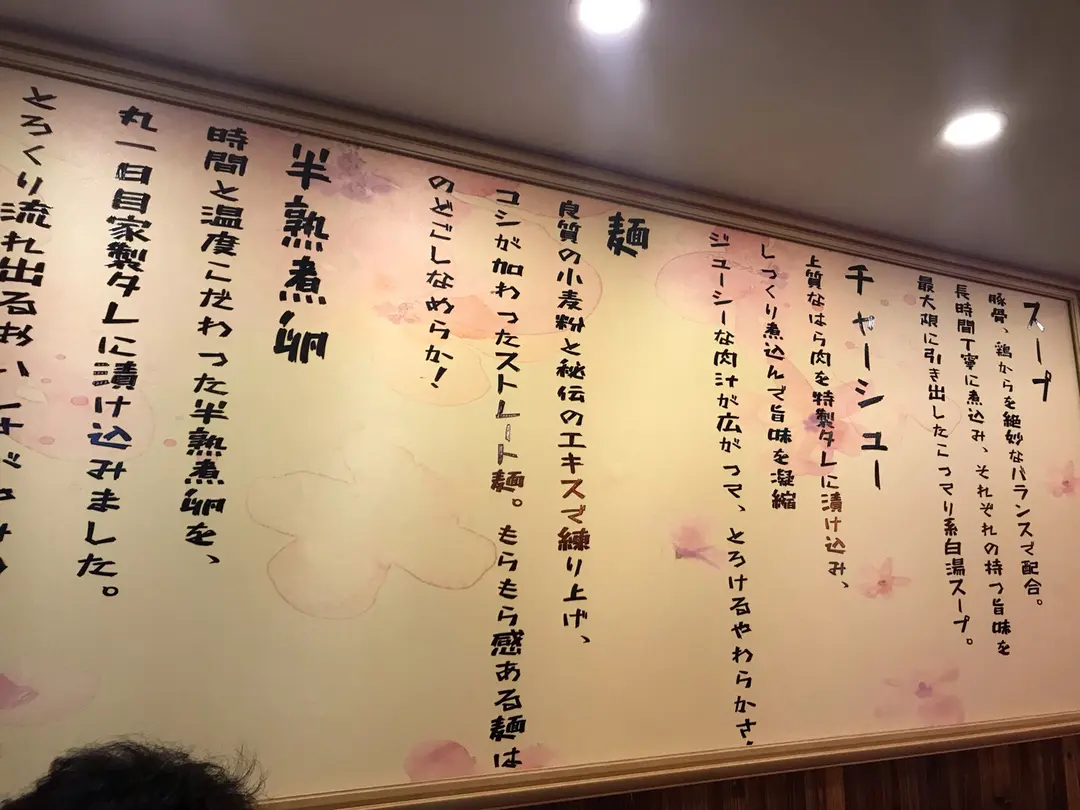 スープ
豚骨、鶏がらを絶妙なバランスで配合。
長時間丁寧に煮込み、それぞれの持つ旨味を
最大限に引き出したこってり系白湯スープ。
チャーシュー
上質なばら肉を特製タレに漬け込み、
じっくり煮込んで旨味を凝縮
ジューシーな肉汁が広がって、とろけるやわらかさ!
麺
良質の小麦粉と秘伝のエキスで練り上げ、
コシが加わったストレート麺。もちもち感ある麺は
のどごしなめらか!
半熟煮卵
時間と温度こだわった半熟煮卵を、
丸一日自家製タレに漬け込みました。
とろ〜り流れ出るおいしさ